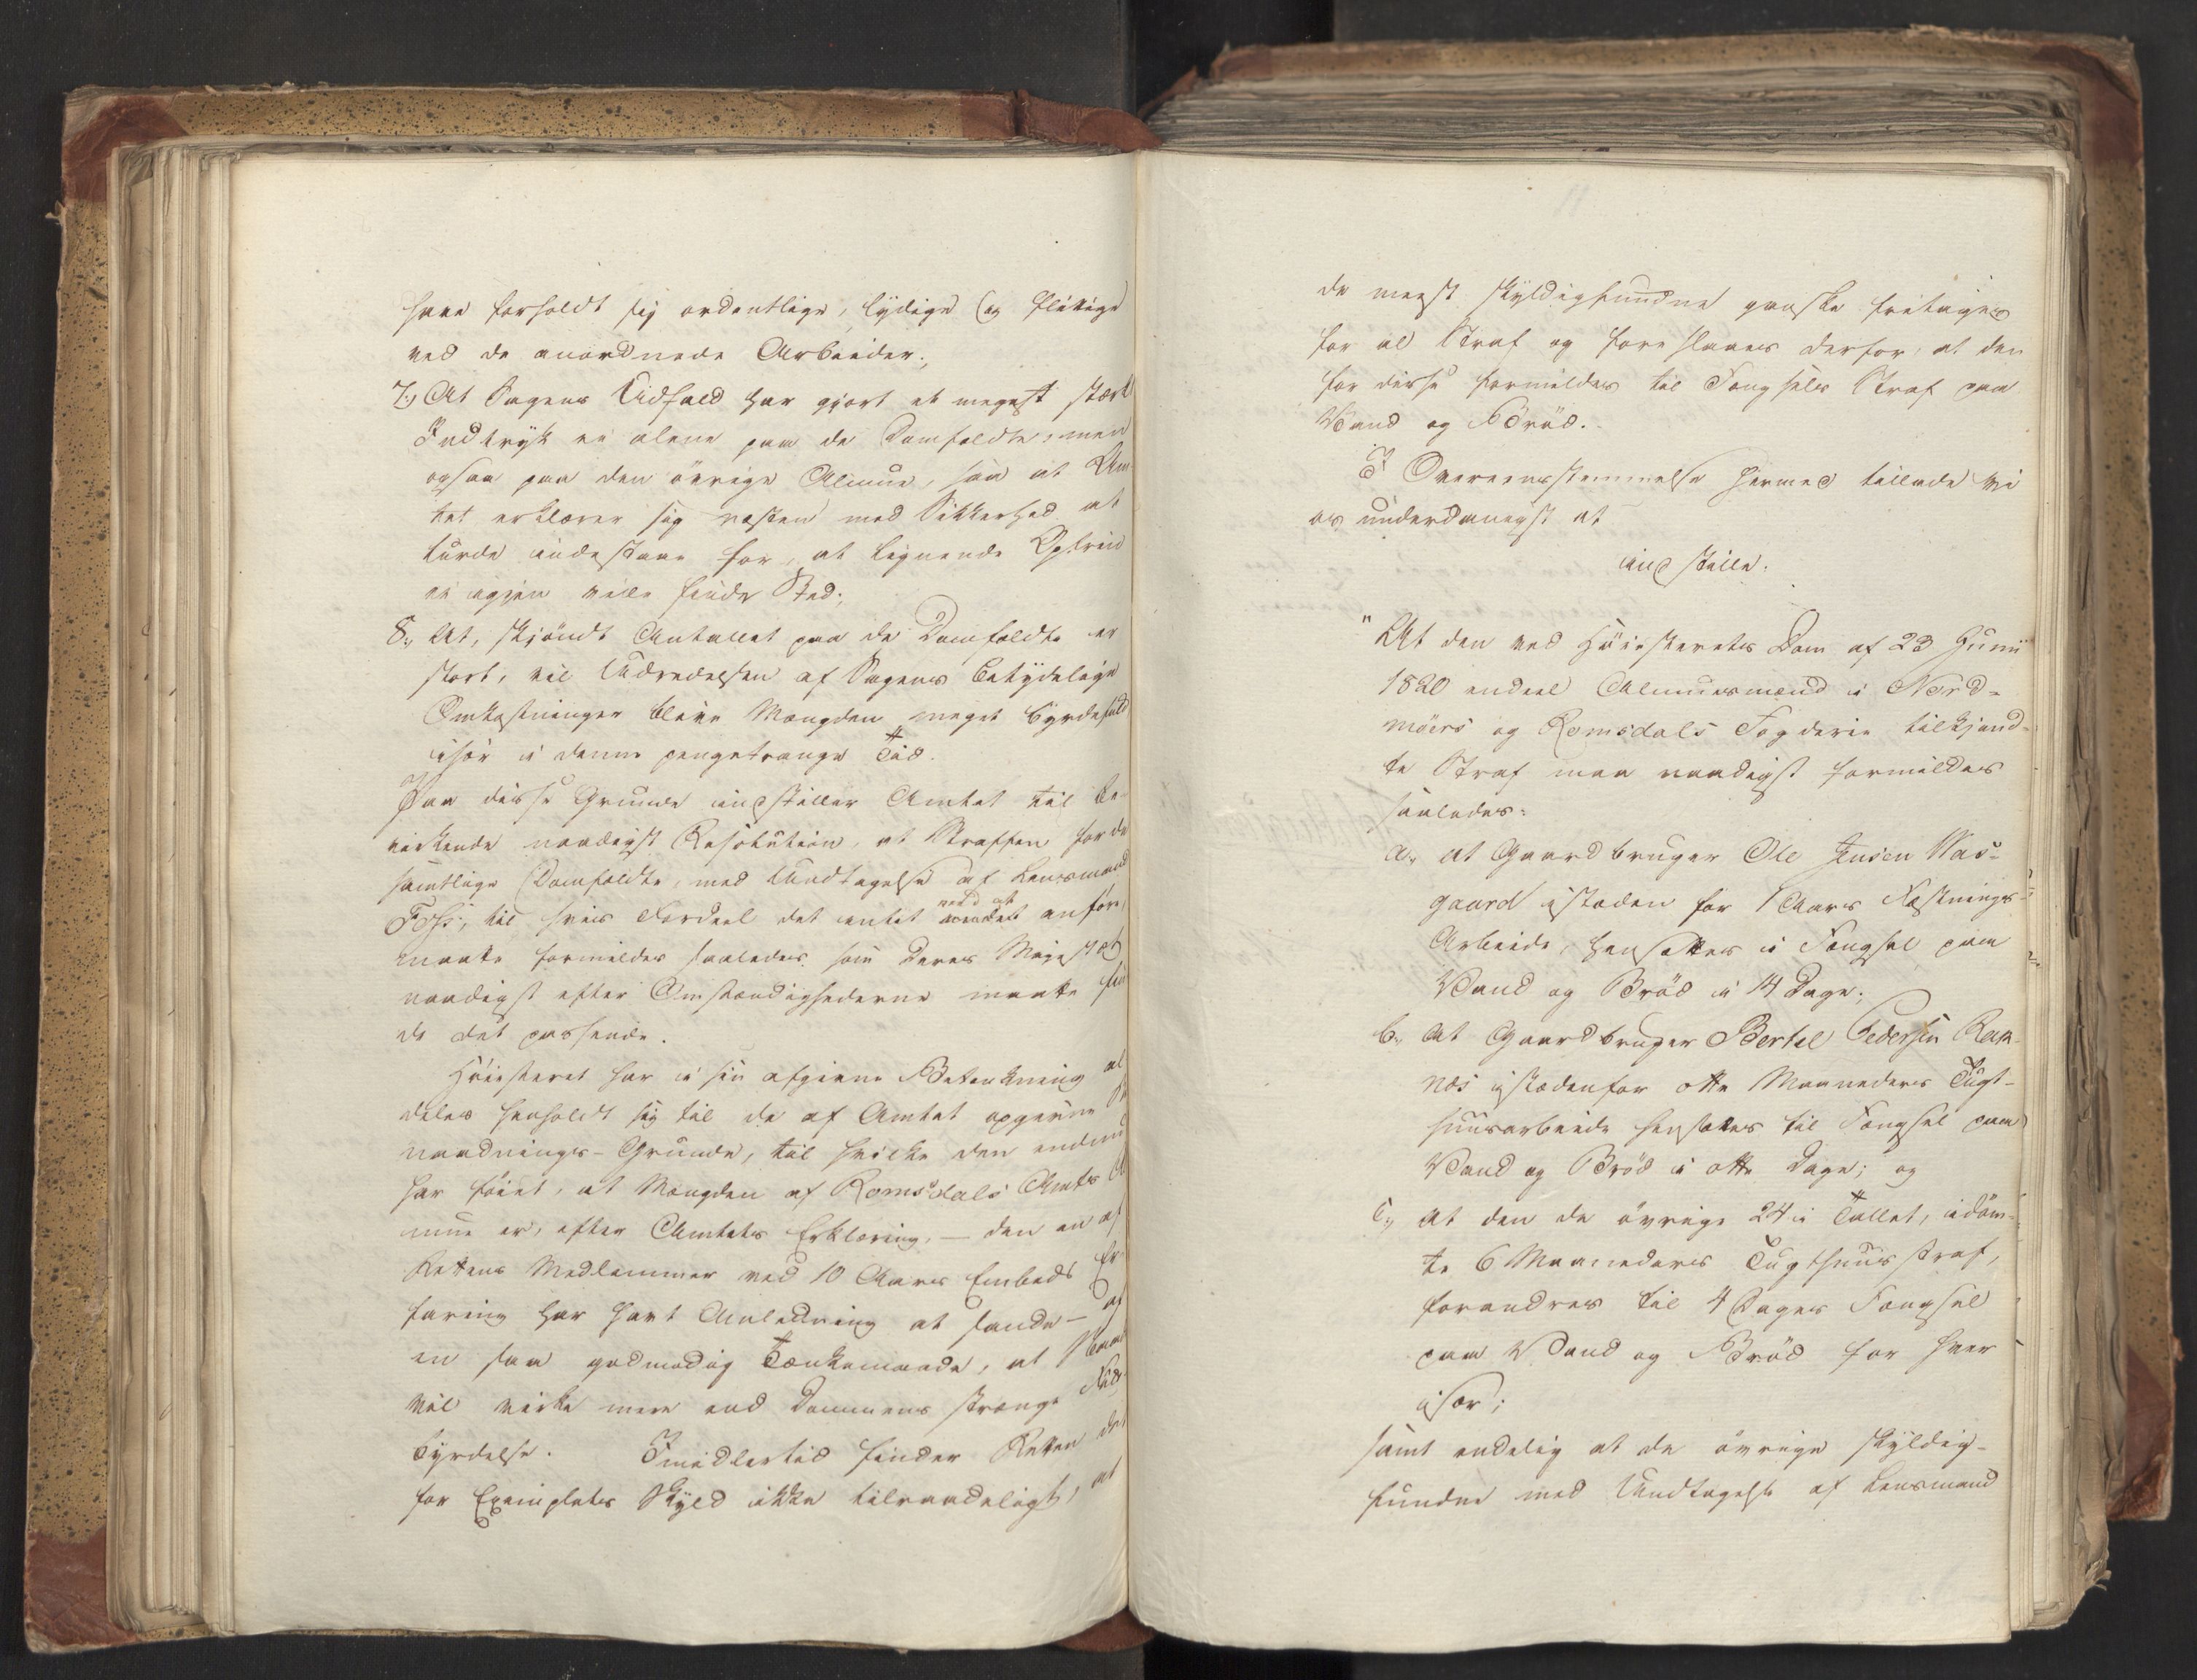 have forholdt sig ordentlige, lydige og flittige
ved de anordnede Arbeider;
7., At Sagens Udfald har gjort et megest stærkt
Indtryk ei alene paa de Domfældte, men
ogsaa paa den övrige Almue, saa at Am-
tet erklærer sig næsten med Sikkerhed at
turde indestaae for, at lignende Optrin
ei igjen ville finde Sted;
8., At, skjöndt Antallet paa de Domfældte er
stort, vil Udredelsen af Sagens betydelige
Omkostninger blive Mængden meget byrdefuld
især i denne pengetrange Tid.
Paa disse Grunde indstiller Amtet til be-
virkende naadigst Resolution, at Straffen for de
samtlige Domfældte, med Undtagelse af Lensmand
Foss, til hvis Fordeel det intet veed at anföre,
maatte formildes saaledes som Deres Majestæt
naadigst efter Omstændighederne maatte fin-
de det passende.
Höiesteret har i sin afgivne Betænkning al-
deles henholdt sig til de af Amtet opgivne Be-
naadnings-Grunde, til hvilke den endnu
har föiet, at Mængden af Romsdals Amts Al-
mue er, efter Amtets Erklæring, — den en af
Rettens Medlemmer ved 10 Aars Embeds Er-
faring har havt Anledning at sande — af
en saa godmodig Tænkemaade, at Naade
vil virke mere end Dommens strænge Fuld-
byrdelse. Imidlertid finder Retten det
for Exemplets Skyld ikke tilraadeligt, at
de meest skyldigfundne ganske fritages
for al Straf og foreslaaes derfor, at den
for disse formildes til Fængsels Straf paa
Vand og Bröd.
I Overeensstemmelse hermed tillade vi
os underdanigst at
indstille:
"At den ved Höiesterets Dom af 23 Junii
1820 endeel Almuesmænd i Nord-
möers og Romsdals Fogderie tilkjend-
te Straf maa naadigst formildes
saaledes:
a., at Gaardbruger Ole Jensen Aas-
gaard istæden for 1 Aars Fæstnings-
Arbeide, hensættes i Fængsel paa
Vand og Bröd i 14 Dage;
b., at Gaardbruger Bertel Pedersen Rek-
næs istædenfor otte Maaneders Tugt-
huusarbeide hensættes til Fængsel paa
Vand og Bröd i otte Dage; og
c., at den de övrige 24 i Tallet, idöm-
te 6 Maaneders Tugthuusstraf,
forandres til 4 Dages Fængsel
paa Vand og Bröd for hver
især;
samt endelig at de övrige skyldig-
fundne med Undtagelse af Lensmand